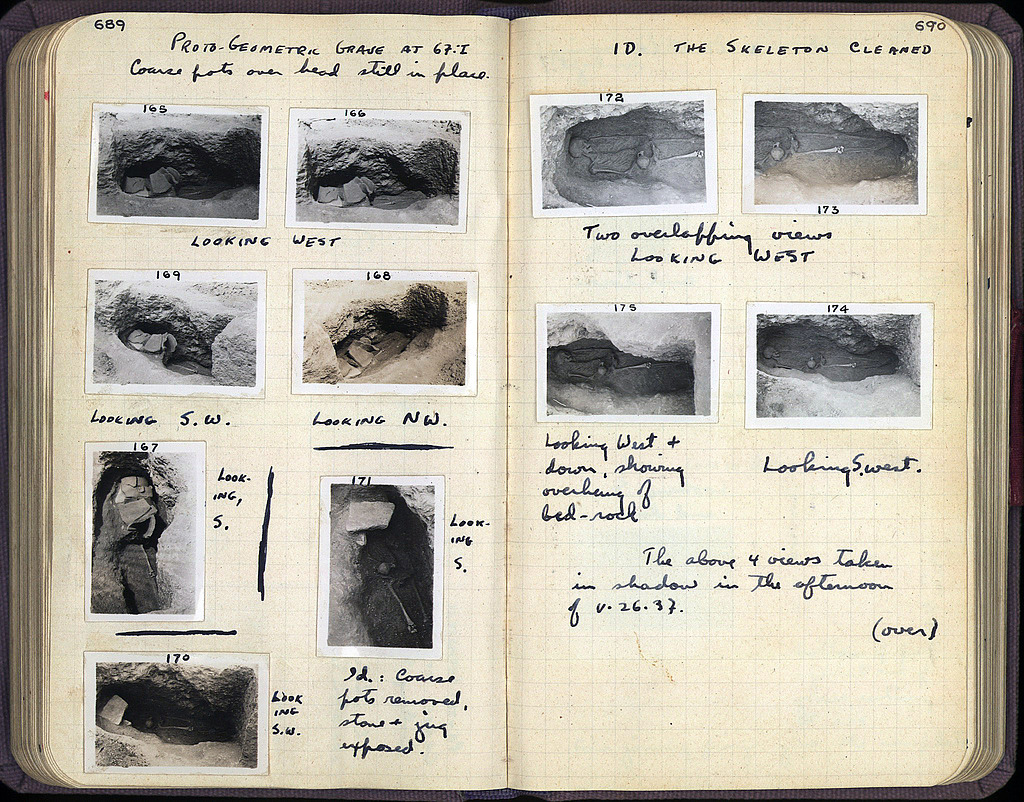 689
PROTO-GEOMETRIC GRAVE AT 67:I
Coarse pots over head still in place.
165
166
LOOKING WEST
169
168
LOOKING S.W.
LOOKING NW.
167
LOOK-
ING,
S.
171
LOOK-
ING
S.
170
LOOK
ING
S.W.
Id.: Coarse
pots removed,
stone + jug
exposed.
690
ID. THE SKELETON CLEANED
172
173
Two overlapping views
LOOKING WEST
175
174
Looking West +
down, showing
overhang of
bed-rock
Looking S.west.
The above 4 views taken
in shadow in the afternoon
of V.26.37.
(over)